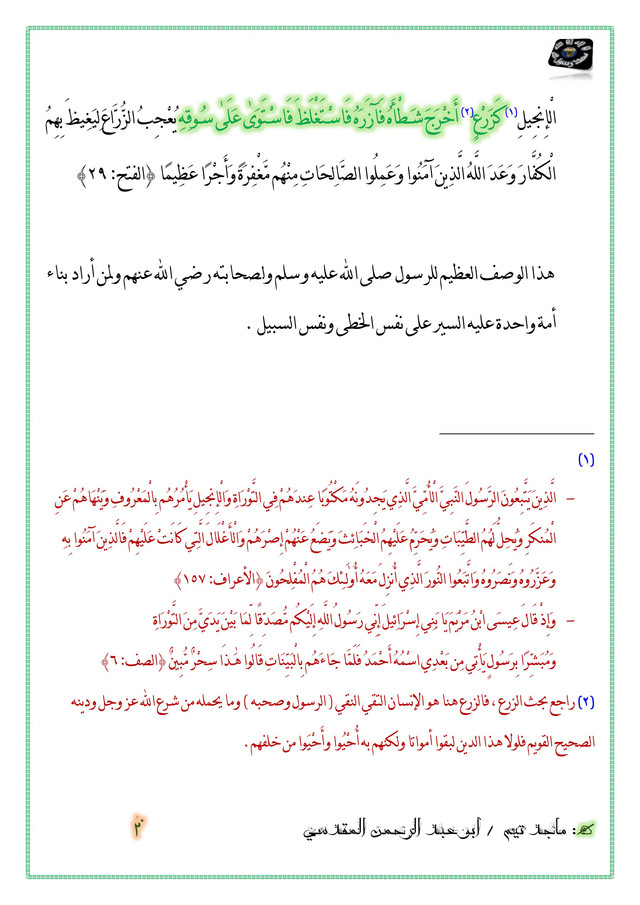 الْإِنجِيلِ(١) كَزَرْعٍ(٢) أَخْرَجَ شَطْأَهُ فَآزَرَهُ فَاسْتَغْلَظَ فَاسْتَوَىٰ عَلَىٰ سُوقِهِ يُعْجِبُ الزُّرَّاعَ لِيَغِيظَ بِهِمُ
الْكُفَّارَ وَعَدَ اللَّهُ الَّذِينَ آمَنُوا وَعَمِلُوا الصَّالِحَاتِ مِنْهُم مَّغْفِرَةً وَأَجْرًا عَظِيمًا ﴿الفتح: ٢٩﴾
هذا الوصف العظيم للرسول صلى الله عليه وسلم ولصحابته رضي الله عنهم ولمن أراد بناء
أمة واحدة عليه السير على نفس الخطى ونفس السبيل .
(١)
– الَّذِينَ يَتَّبِعُونَ الرَّسُولَ النَّبِيَّ الْأُمِّيَّ الَّذِي يَجِدُونَهُ مَكْتُوبًا عِندَهُمْ فِي التَّوْرَاةِ وَالْإِنجِيلِ يَأْمُرُهُم بِالْمَعْرُوفِ وَيَنْهَاهُمْ عَنِ
الْمُنكَرِ وَيُحِلُّ لَهُمُ الطَّيِّبَاتِ وَيُحَرِّمُ عَلَيْهِمُ الْخَبَائِثَ وَيَضَعُ عَنْهُمْ إِصْرَهُمْ وَالْأَغْلَالَ الَّتِي كَانَتْ عَلَيْهِمْ فَالَّذِينَ آمَنُوا بِهِ
وَعَزَّرُوهُ وَنَصَرُوهُ وَاتَّبَعُوا النُّورَ الَّذِي أُنزِلَ مَعَهُ أُولَٰئِكَ هُمُ الْمُفْلِحُونَ ﴿الأعراف: ١٥٧﴾
– وَإِذْ قَالَ عِيسَى ابْنُ مَرْيَمَ يَا بَنِي إِسْرَائِيلَ إِنِّي رَسُولُ اللَّهِ إِلَيْكُم مُّصَدِّقًا لِّمَا بَيْنَ يَدَيَّ مِنَ التَّوْرَاةِ
وَمُبَشِّرًا بِرَسُولٍ يَأْتِي مِن بَعْدِي اسْمُهُ أَحْمَدُ فَلَمَّا جَاءَهُم بِالْبَيِّنَاتِ قَالُوا هَٰذَا سِحْرٌ مُّبِينٌ ﴿الصف: ٦﴾
(٢) راجع بحث الزرع ، فالزرع هنا هو الإنسان التقي النقي ( الرسول وصحبه ) وما يحمله من شرع الله عز وجل ودينه
الصحيح القويم فلولا هذا الدين لبقوا أمواتا ولكنهم به أُحْيُوا وأَحْيَوا من خلفهم .
: ماجد تيم / أبو عبد الرحمن المقدسي
٢٠